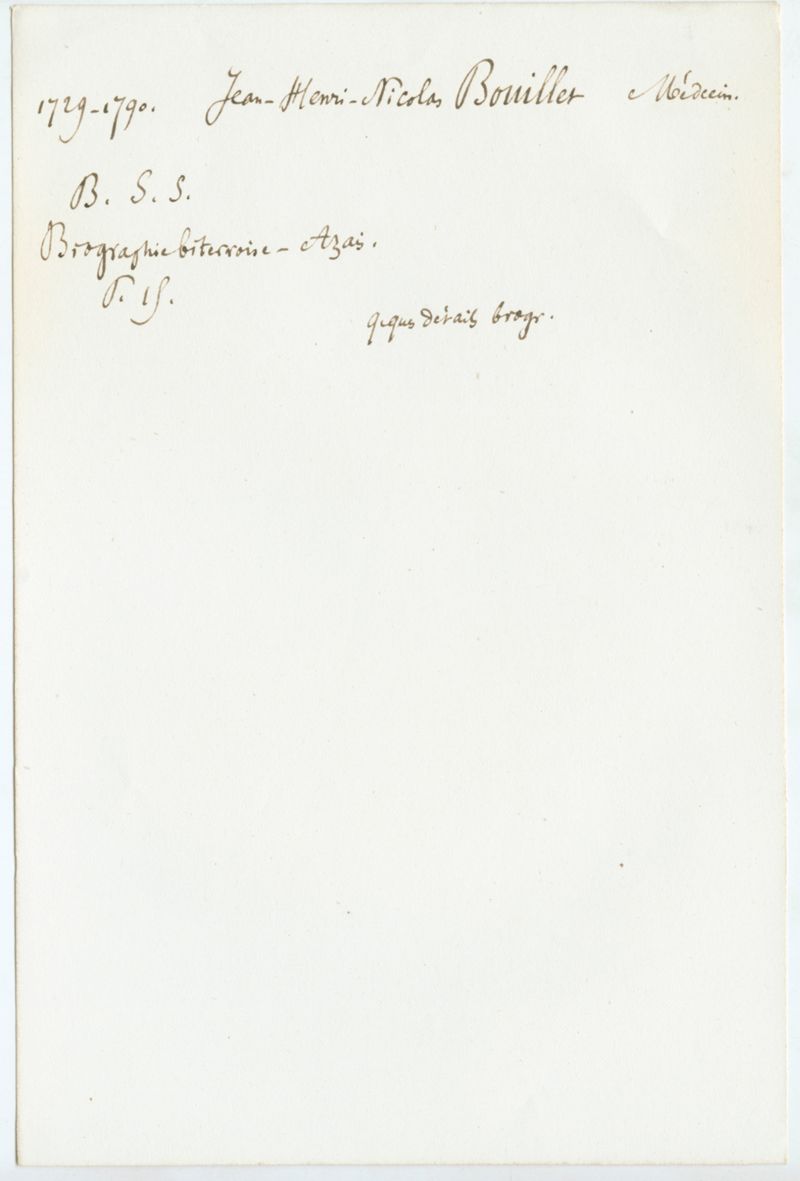 1729-1790. Jean-Henri-Nicolas Bouillet Médecin.
B. S. S.
Biographie biterroise - Azaïs.
P. 15.
qques détails biogr.